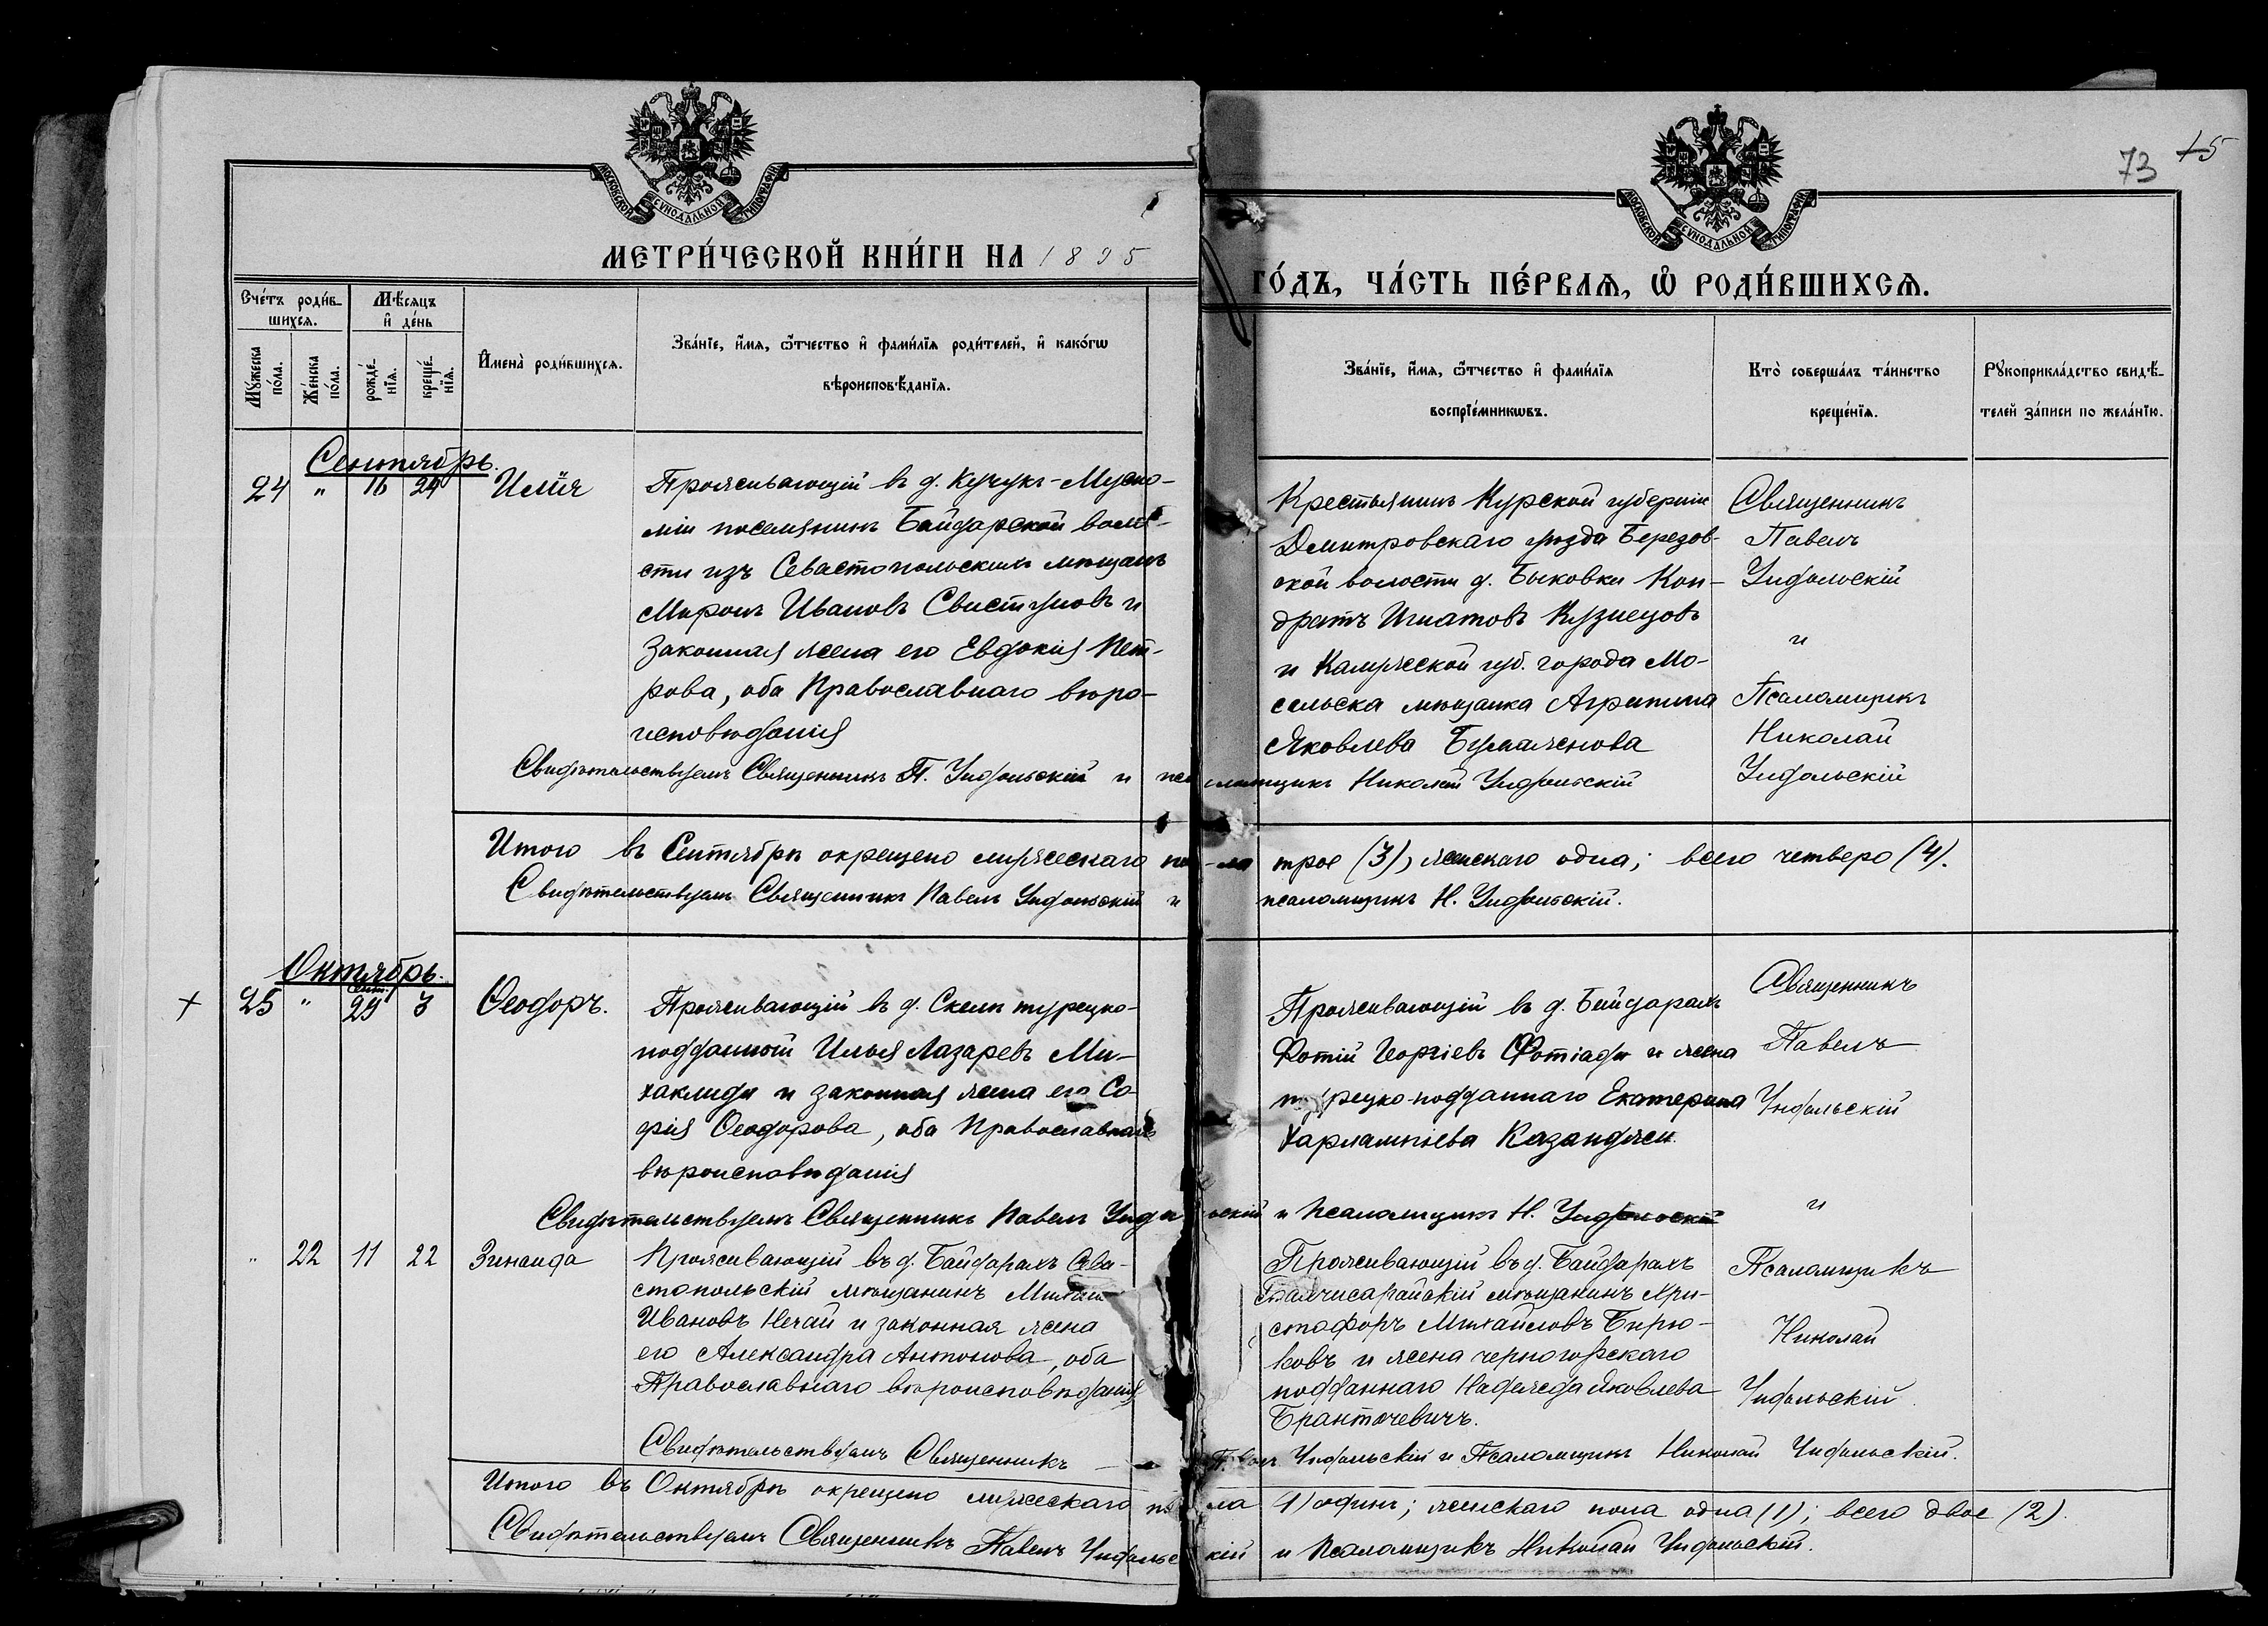 73 15
МОСКОВСКОЙ СѴНОДАЛЬНОЙ ТИПОГРАФІИ
МОСКОВСКОЙ СѴНОДАЛЬНОЙ ТИПОГРАФІИ
МЕТРИ́ЧЕСКОЙ КНИ́ГИ НА 1895
ГО́ДЪ, ЧА́СТЬ ПЕ́РВАѦ, Ѽ РОДИ́ВШИХСѦ.
Счéтъ роди́в-
шихсѧ.
Мꙋ́жеска
по́ла.
Же́нска
по́ла.
Мѣ́сяцъ
и҆ де́нь
рожде́-
нїѧ.
креще́-
нїѧ.
И҆мена̀ роди́вшихсѧ.
Зва́нїе, и҆́мѧ, ѻ҆́тчество и҆ фами́лїѧ роди́телей, и҆ како́гѡ
вѣроисповѣ́данїѧ.
Зва́нїе, и҆́мѧ, ѻ҆́тчество и҆ фами́лїѧ
воспрїе́мникѡвъ.
Кто̀ соверша́лъ та́инство
креще́нїѧ.
Рꙋкоприкла́дство свидѣ́-
телей за́писи по жела́нїю.
Сентябрь.
24 " 16 24 Илія
Проживающій въ д. Кучукъ-Муско-
міи поселянинъ Байдарской воло-
сти изъ Севастопольскихъ мѣщанъ
Миронъ Ивановъ Свистуновъ и
законная жена его Евдокія Пет-
рова, оба Православнаго вѣро-
исповѣданія
Крестьянинъ Курской губерніи
Дмитровскаго уѣзда Березов-
ской волости д. Быковки Кон-
дратъ Игнатовъ Кузнецовъ
и Калужской губ. города Мо-
сальска мѣщанка Агрипина
Яковлева Бумаженова
Священникъ
Павелъ
Ундольскій
и
Псаломщикъ
Николай
Ундольскій
Свидѣтельствуемъ Священникъ П. Ундольскій и псаломщикъ Николай Ундольскій
Итого въ Сентябрѣ окрещено мужескаго пола трое (3), женскаго одна; всего четверо (4).
Свидѣтельствуемъ Священникъ Павелъ Ундольскій и псаломщикъ Н. Ундольскій.
Октябрь.
Сент.
+ 25 " 29 3 Ѳеодоръ.
Проживающій въ д. Скели турецко-
подданный Илья Лазаревъ Ми-
хаклиди и законная жена его Со-
фія Ѳеодорова, оба Православнаго
вѣроисповѣданія
Проживающій въ д. Байдарахъ
Фотій Георгіевъ Фотіади и жена
турецко-подданнаго Екатерина
Харлампіева Казанджи
Священникъ
Павелъ
Ундольскій
и
Свидѣтельствуемъ Священникъ Павелъ Ундольскій и Псаломщикъ Н. Ундольскій
" 22 11 22 Зинаида
Проживающій въ д. Байдарахъ Сева-
стопольскій мѣщанинъ Михаилъ
Ивановъ Нечай и законная жена
его Александра Антонова, оба
Православнаго вѣроисповѣданія
Проживающій въ д. Байдарахъ
Бахчисарайскій мѣщанинъ Хри-
стофоръ Михайловъ Бирю-
ковъ и жена черногорскаго
подданнаго Надежда Яковлева
Брантичевичъ.
Псаломщикъ
Николай
Ундольскій.
Свидѣтельствуемъ Священникъ — Павелъ Ундольскій и Псаломщикъ Николай Ундольскій.
Итого въ Октябрѣ окрещено мужескаго пола (1) одинъ; женскаго пола одна (1); всего двое (2).
Свидѣтельствуемъ Священникъ Павелъ Ундольскій и Псаломщикъ Николай Ундольскій.